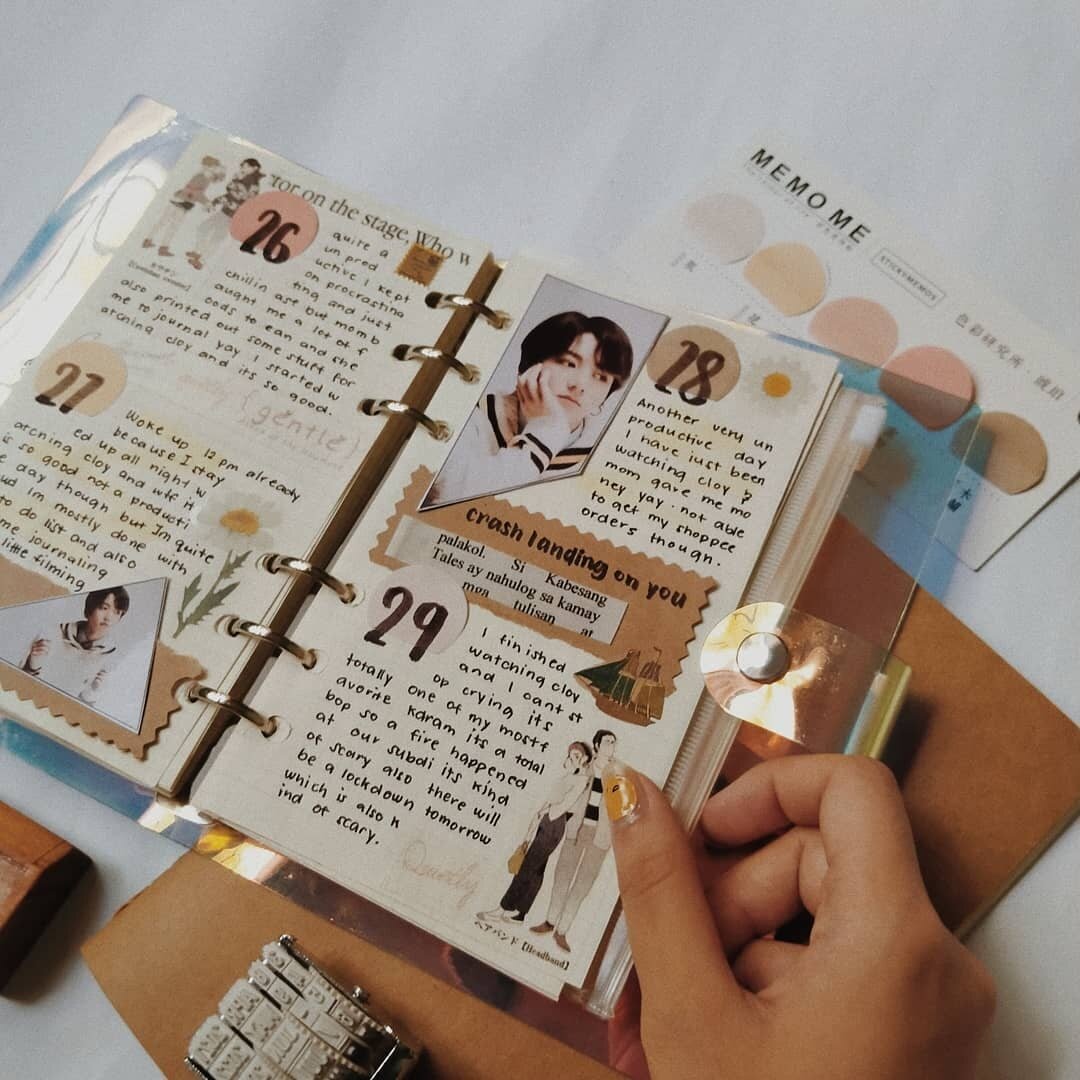 tor on the stage, Who w
26
quite a
un prod
uctive I kept
on procrastina
ting and just
chillin ase but mom b
aught me a lot of f
oods to ean and she
also printed out some stuff for
me to journal yay I started w
atching cloy and its so good.
(gentle)
27
Woke up 12 pm already
because I stay
ed up all night w
atching cloy and wtf it
is so good not a producti
e day though but Im quite
ud Im mostly done with
to do list and also
me journaling
little filming
28
Another very un
productive day
I have just been
watching cloy &
mom gave me mo
ney yay. not able
to get my shoppee
orders though.
crash landing on you
palakol. Si Kabesang
Tales ay nahulog sa kamay
mga tulisan at
29
I finished
watching cloy
and I cant st
op crying its
totally one of my most f
avorite Karam its a total
bop so a fire happened
at our subdi its kind
of scary also there will
be a lockdown tomorrow
which is also k
ind of scary.
Quietly
ヘアバンド【Headband】
MEMO ME
STICKYMEMOS
色彩研究所